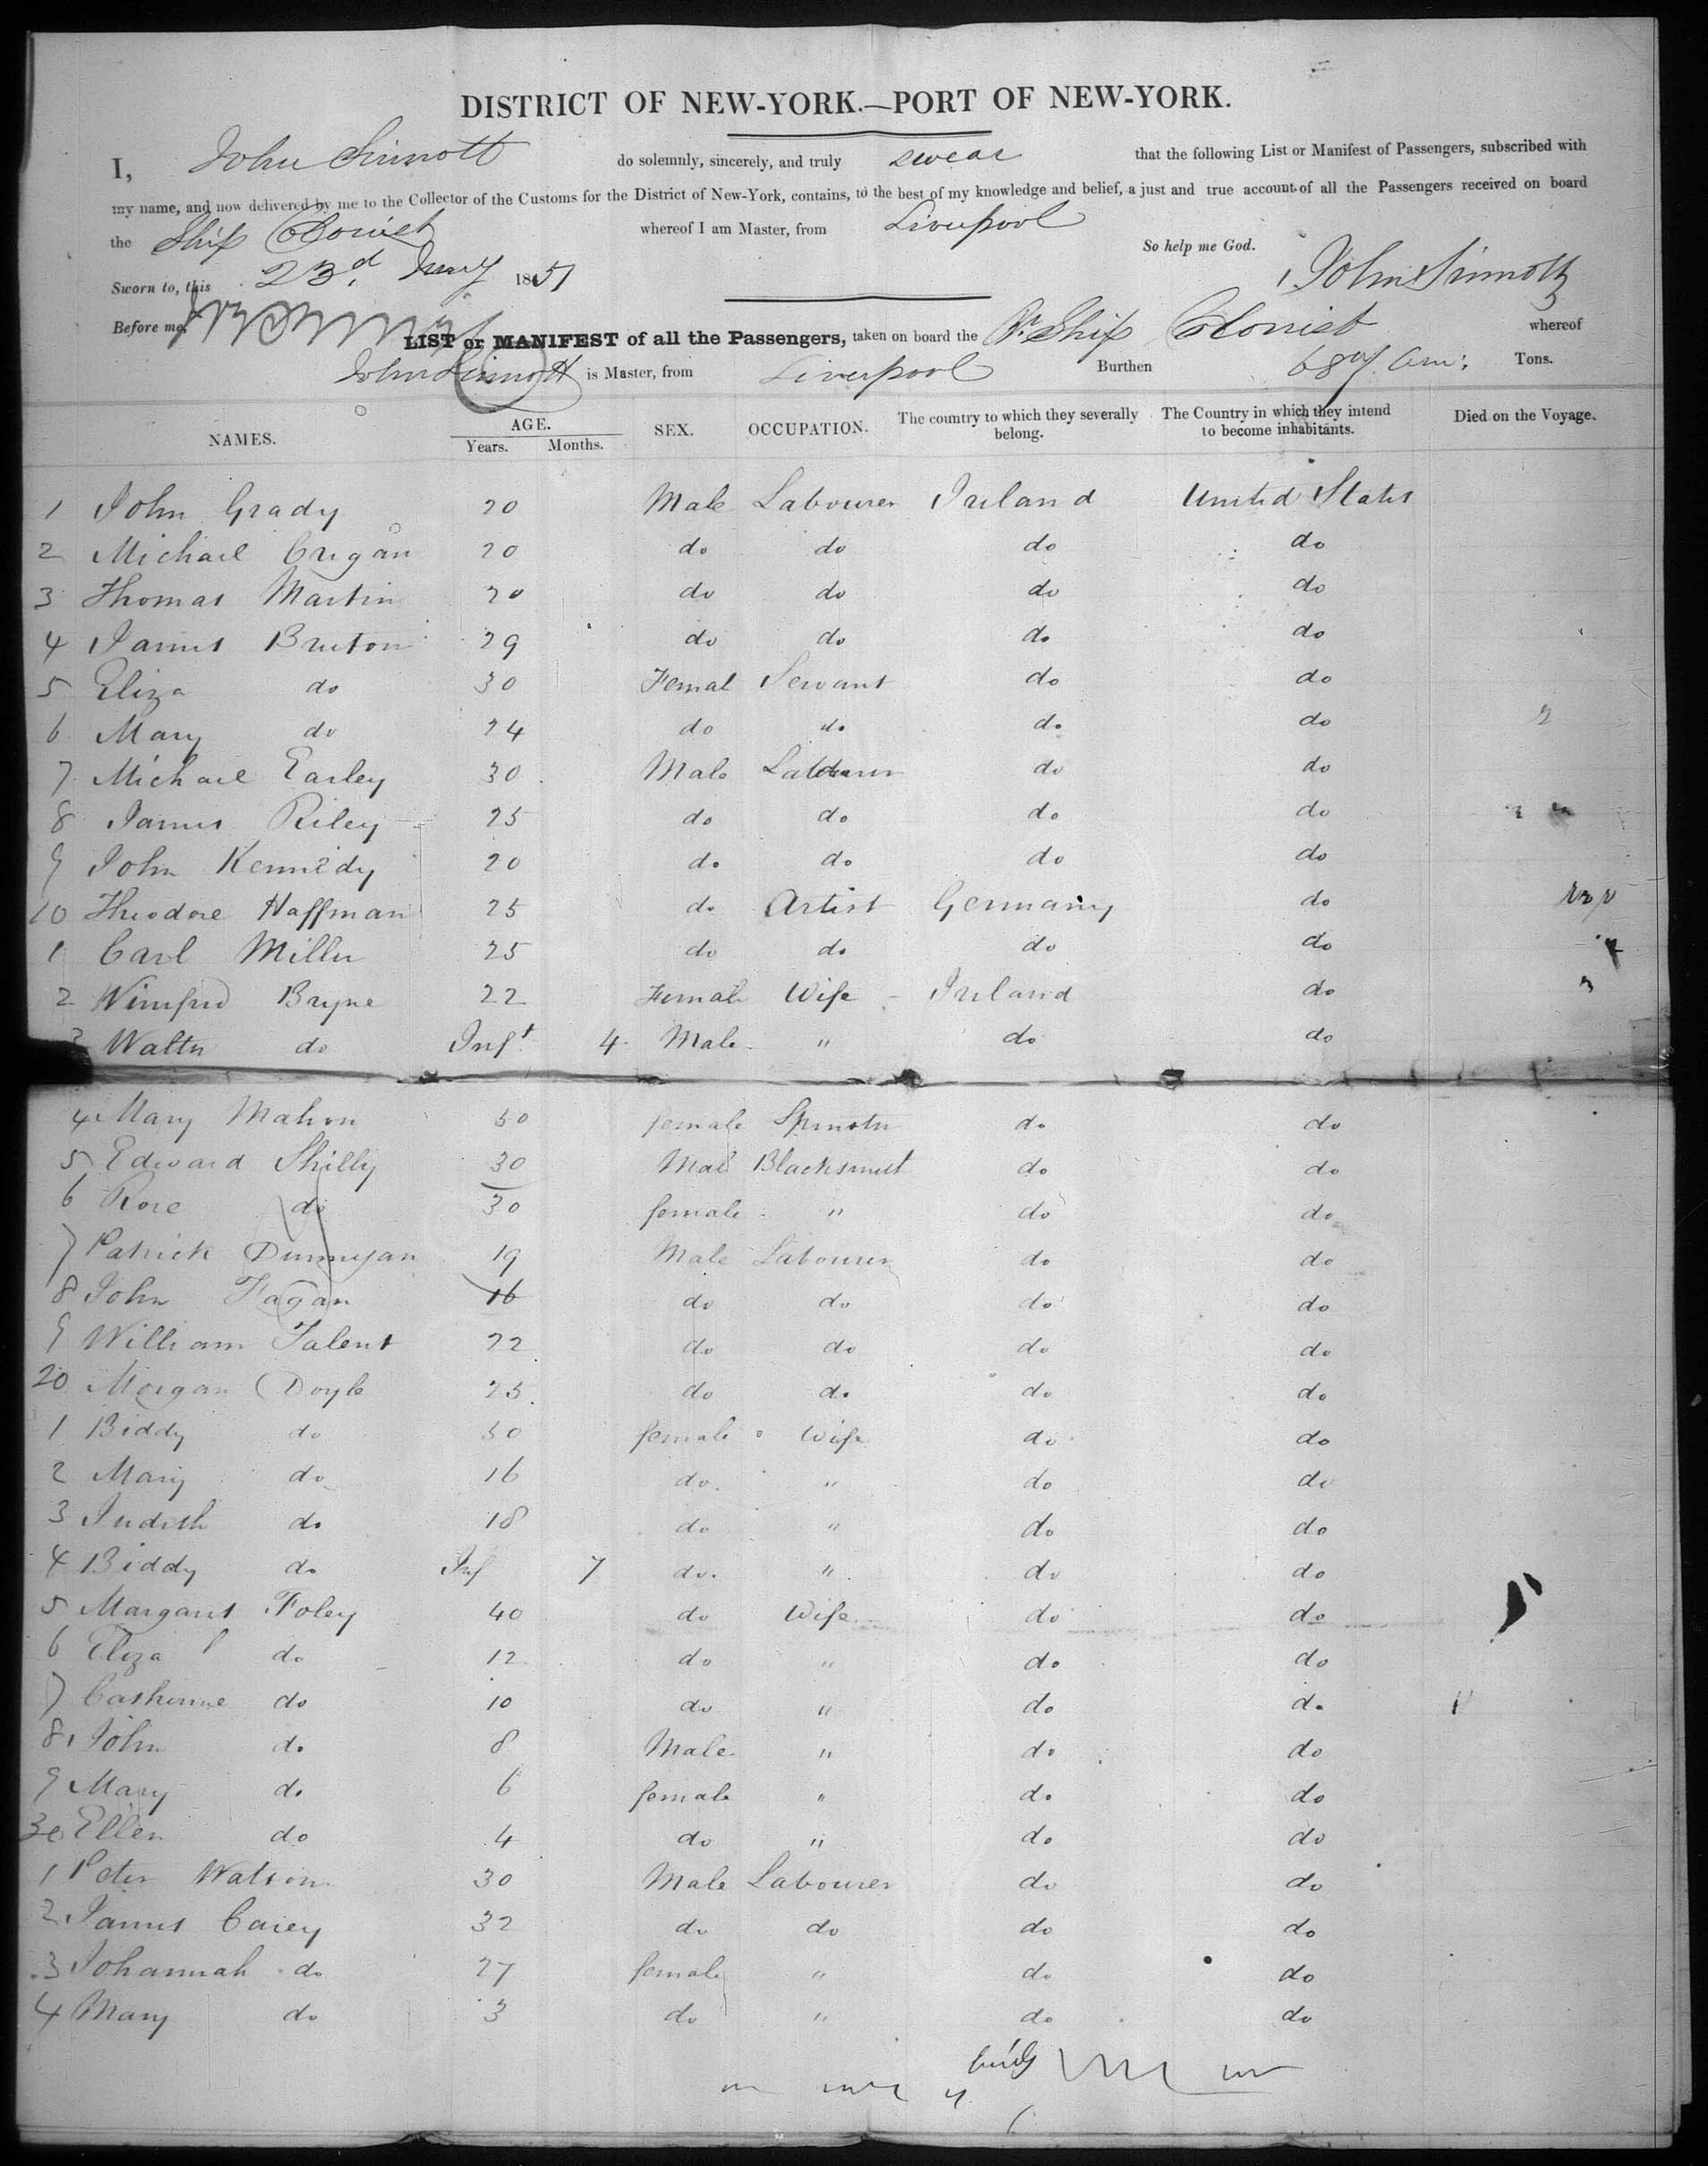 DISTRICT OF NEW-YORK.—PORT OF NEW-YORK.
I, John Sinnott do solemnly, sincerely, and truly swear that the following List or Manifest of Passengers, subscribed with
my name, and now delivered by me to the Collector of the Customs for the District of New-York, contains, to the best of my knowledge and belief, a just and true account of all the Passengers received on board
the Ship Colonist whereof I am Master, from Liverpool
So help me God.
Sworn to, this 23.d May 1851 John Sinnott
Before me,
LIST or MANIFEST of all the Passengers, taken on board the Ship Colonist whereof
John Sinnott is Master, from Liverpool Burthen 687 Tons.
NAMES. AGE. Years. Months. SEX. OCCUPATION. The country to which they severally belong. The Country in which they intend to become inhabitants. Died on the Voyage.
1 John Grady 20 Male Labourer Ireland United States
2 Michael Crigan 20 do do do do
3 Thomas Martin 20 do do do do
4 James Bruton 29 do do do do
5 Eliza do 30 Femal Servant do do
6 Mary do 24 do do do do
7 Michael Earley 30 Male Labourer do do
8 James Riley 25 do do do do
9 John Kennedy 20 do do do do
10 Theodore Haffman 25 do Artist Germany do
1 Carl Miller 25 do do do do
2 Winifred Bryne 22 Female Wife Ireland do
3 Walter do Inft 4 Male " do do
4 Mary Mahon 50 female Spinster do do
5 Edward Shilly 30 Male Blacksmith do do
6 Rose do 30 female " do do
7 Patrick Dunnigan 19 Male Labourer do do
8 John Fagan 16 do do do do
9 William Talent 22 do do do do
20 Morgan Doyle 25 do do do do
1 Biddy do 50 female Wife do do
2 Mary do 16 do " do do
3 Judith do 18 do " do do
4 Biddy do Inf 7 do " do do
5 Margaret Foley 40 do Wife do do
6 Eliza do 12 do " do do
7 Catherine do 10 do " do do
8 John do 8 Male " do do
9 Mary do 6 female " do do
30 Ellen do 4 do " do do
1 Peter Watson 30 Male Labourer do do
2 James Carey 32 do do do do
3 Johannah do 27 female " do do
4 Mary do 3 do " do do